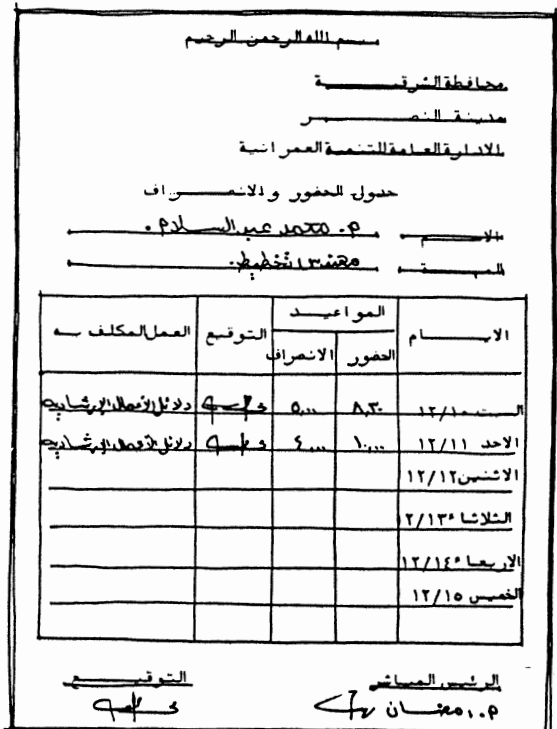 بسم الله الرحمن الرحيم
محافظة الشرقية
مدينة النصر
الادارة العامة للتنمية العمرانية
جدول الحضور والانصراف
الاسم م. محمد عبد السلام.
المهنة مهندس تخطيط.
الايام المواعيد التوقيع العمل المكلف به
الحضور الانصراف
السبت ١٢/١٠ ٨,٣٠ ٥,٠٠ دلائل الأعمال الإرشادية
الاحد ١٢/١١ ١٠,٠٠ ٤,٠٠ دلائل الأعمال الإرشادية
الاثنين ١٢/١٢
الثلاثاء ١٢/١٣
الاربعاء ١٢/١٤
الخميس ١٢/١٥
الرئيس المباشر التوقيع
م. رمضان